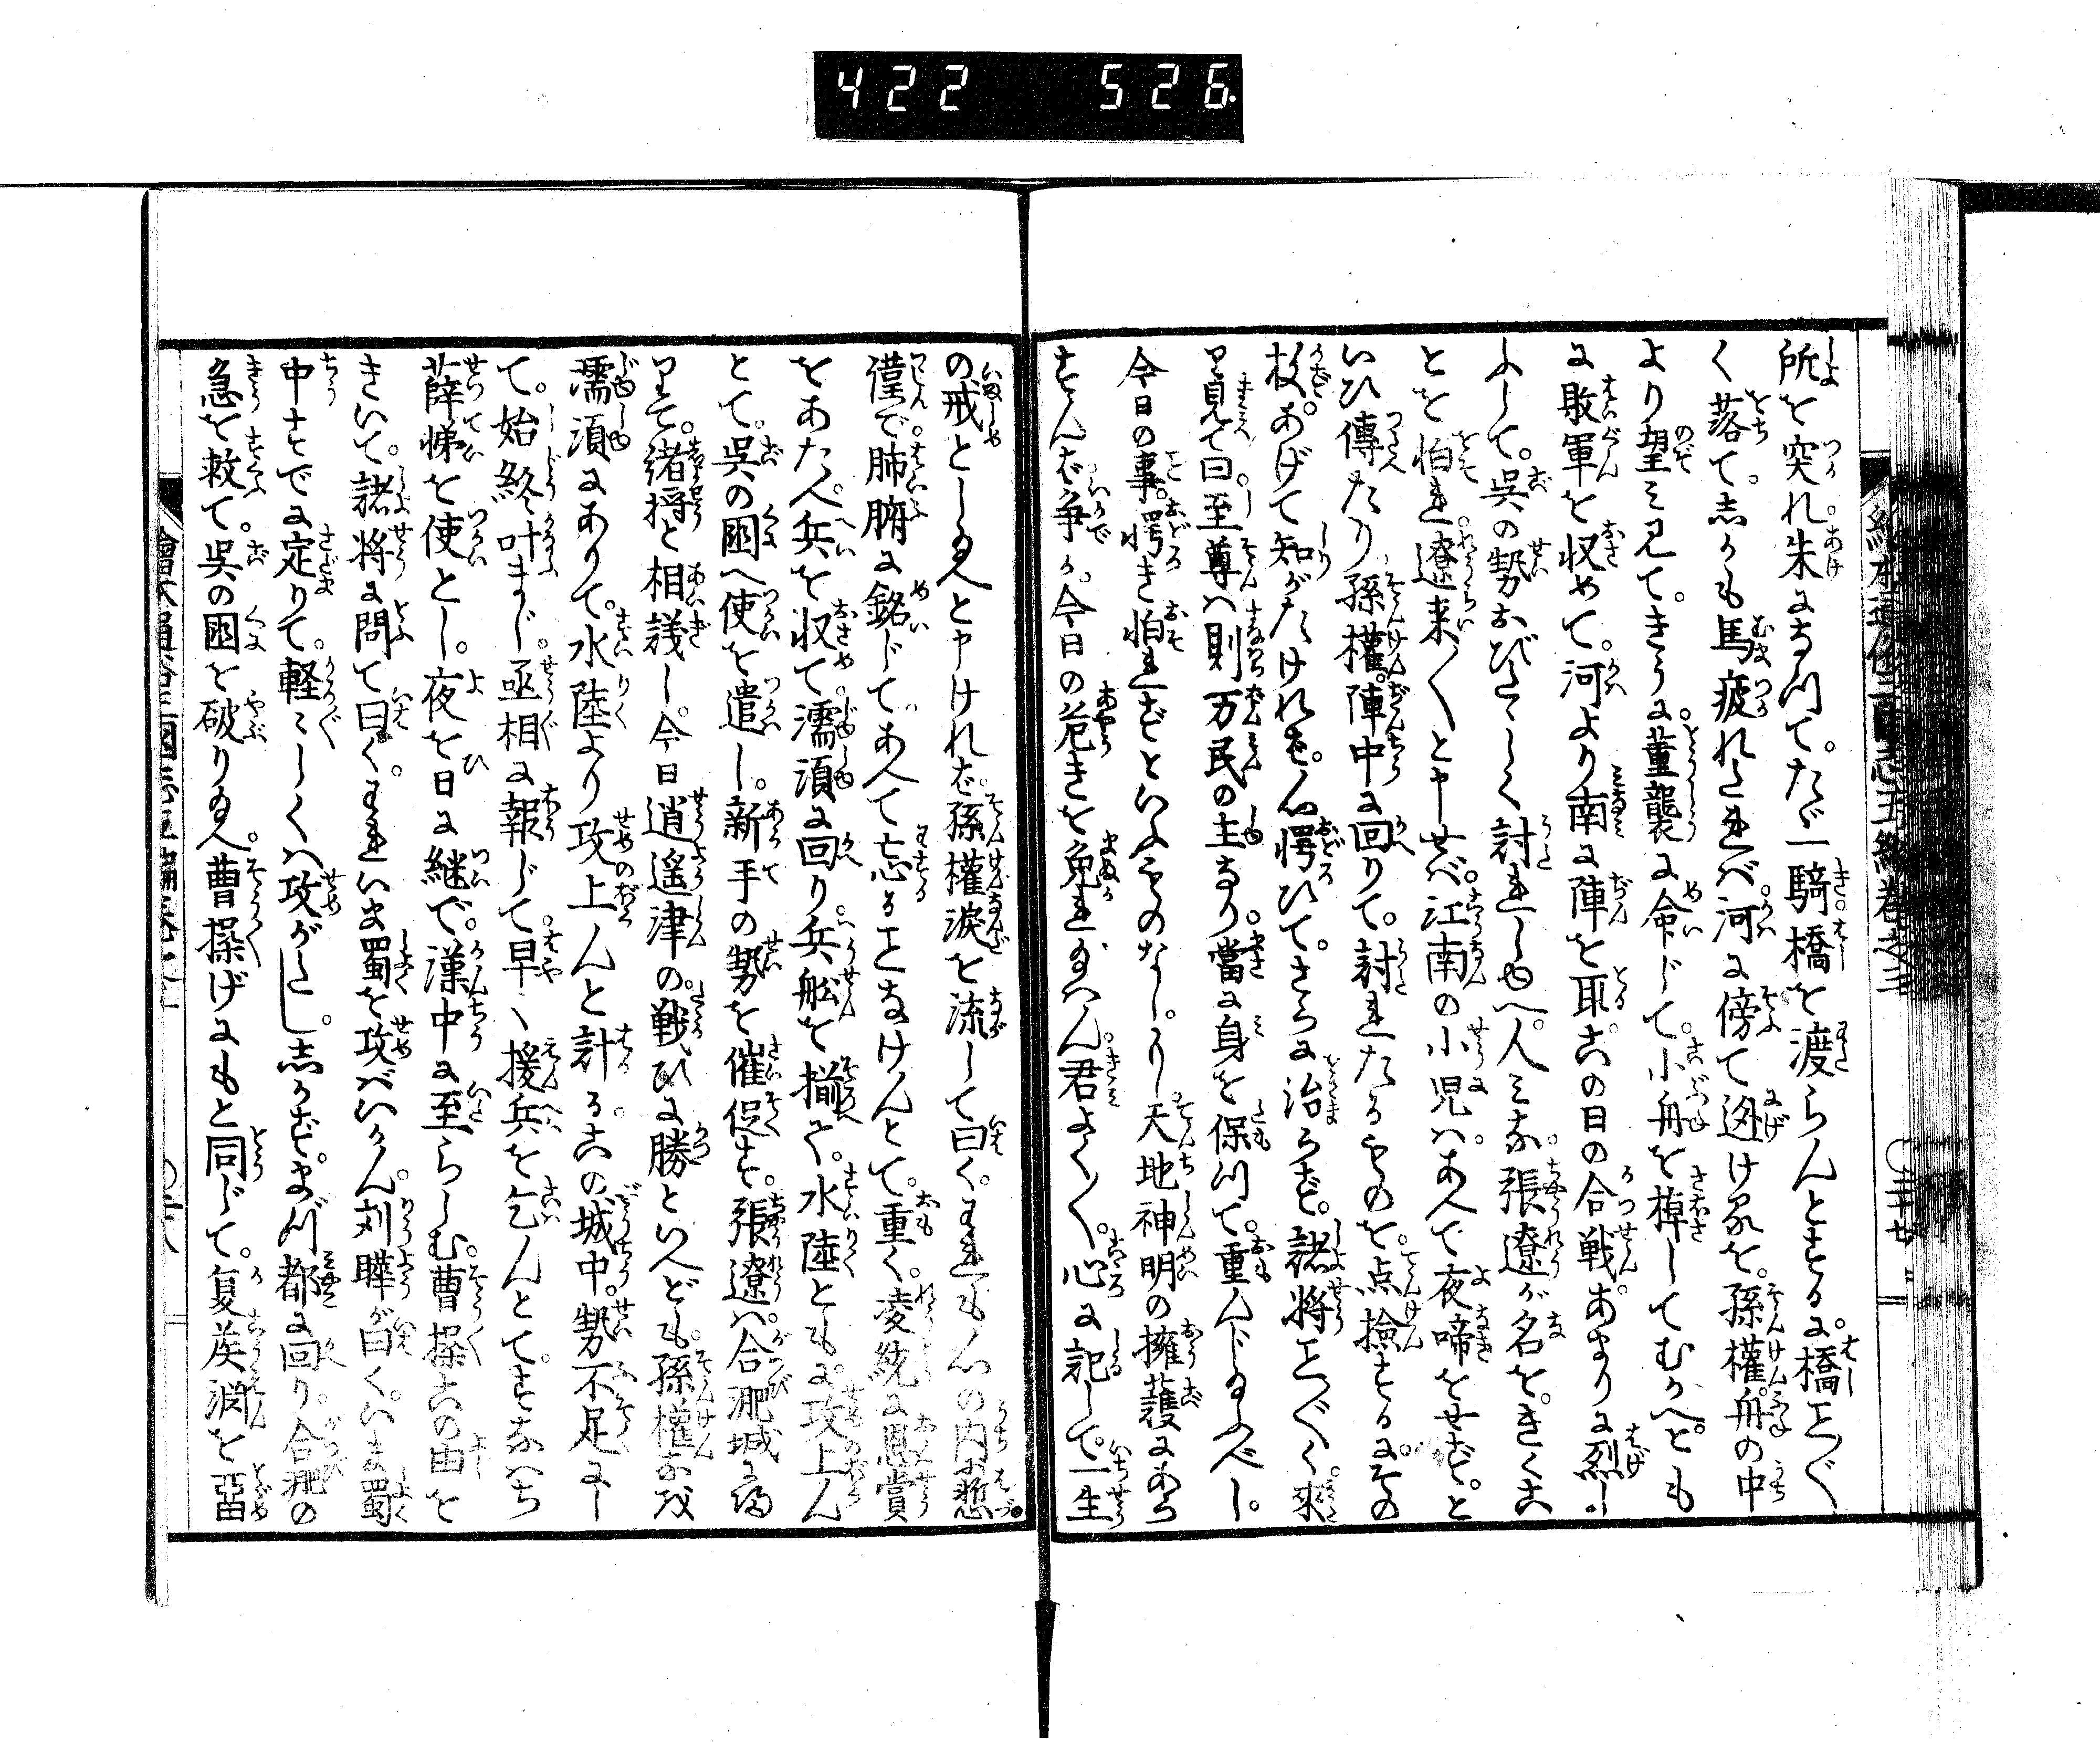 422 526
所を突れ朱になつて。たゞ一騎橋を渡らんとするに。橋こと〴〵
く落て。しかも馬疲れたれバ。河に傍て逃け来るを。孫權舟の中
より望ミ見て。きうに。董襲に命じて。小舟を棹してむかへ。とも
に敗軍を収めて。河より南に陣を取。この日の合戦。あまりに烈し
ふして。呉の勢おびたゝしく討れしゆへ。人ミな。張遼が名を。きくこ
とを怕れ。遼来〳〵と申せバ。江南の小児ハ。あへて夜啼をせず。と
いひ傳たり。孫權。陣中に回りて。討れたるものを。点撿するに。その
枚。あげて知がたけれバ。心愕ひて。さらに治らず。諸将こと〴〵く。來
り見て曰。至尊ハ則万民の主なり。當に身を保つて。重んじ給ふべし。
今日の事。愕き怕れずといふものなし。もし天地神明の擁護にあら
ずんバ争か。今日の危きを免れ給ハん。君よく〳〵。心に記して。一生
の戒とし給へと申けれバ。孫權涙を流して曰く。われも心の内に慙。
謹で肺腑に銘じて。あへて忘るゝことなけんとて。重く。凌統に恩賞
をあたへ。兵を収て濡須に回り。兵舩を揃て。水陸ともに。攻上らん
とて。呉の國へ使を遣し。新手の勢を催促す。張遼ハ。合淝城に帰
りて。緒将と相議し。今日逍遥津の。戦ひに勝といへども。孫權なを
濡須にありて。水陸より攻上らんと計る。この城中。勢不足にし
て。始終叶まじ。丞相に報じて早〻援兵を乞んとて。すなハち
薛悌を使とし。夜を日に継で。漢中に至らしむ。曹操この由を
きいて。諸将に問て曰く。われいま蜀を攻べいかん。刘曄が曰く。いま蜀
中すでに定りて。軽〻しくハ攻がたし。しかず。まづ都に回り。合淝の
急を救て。呉の國を破り給へ。曹操げにもと同じて。夏侯渕を畱